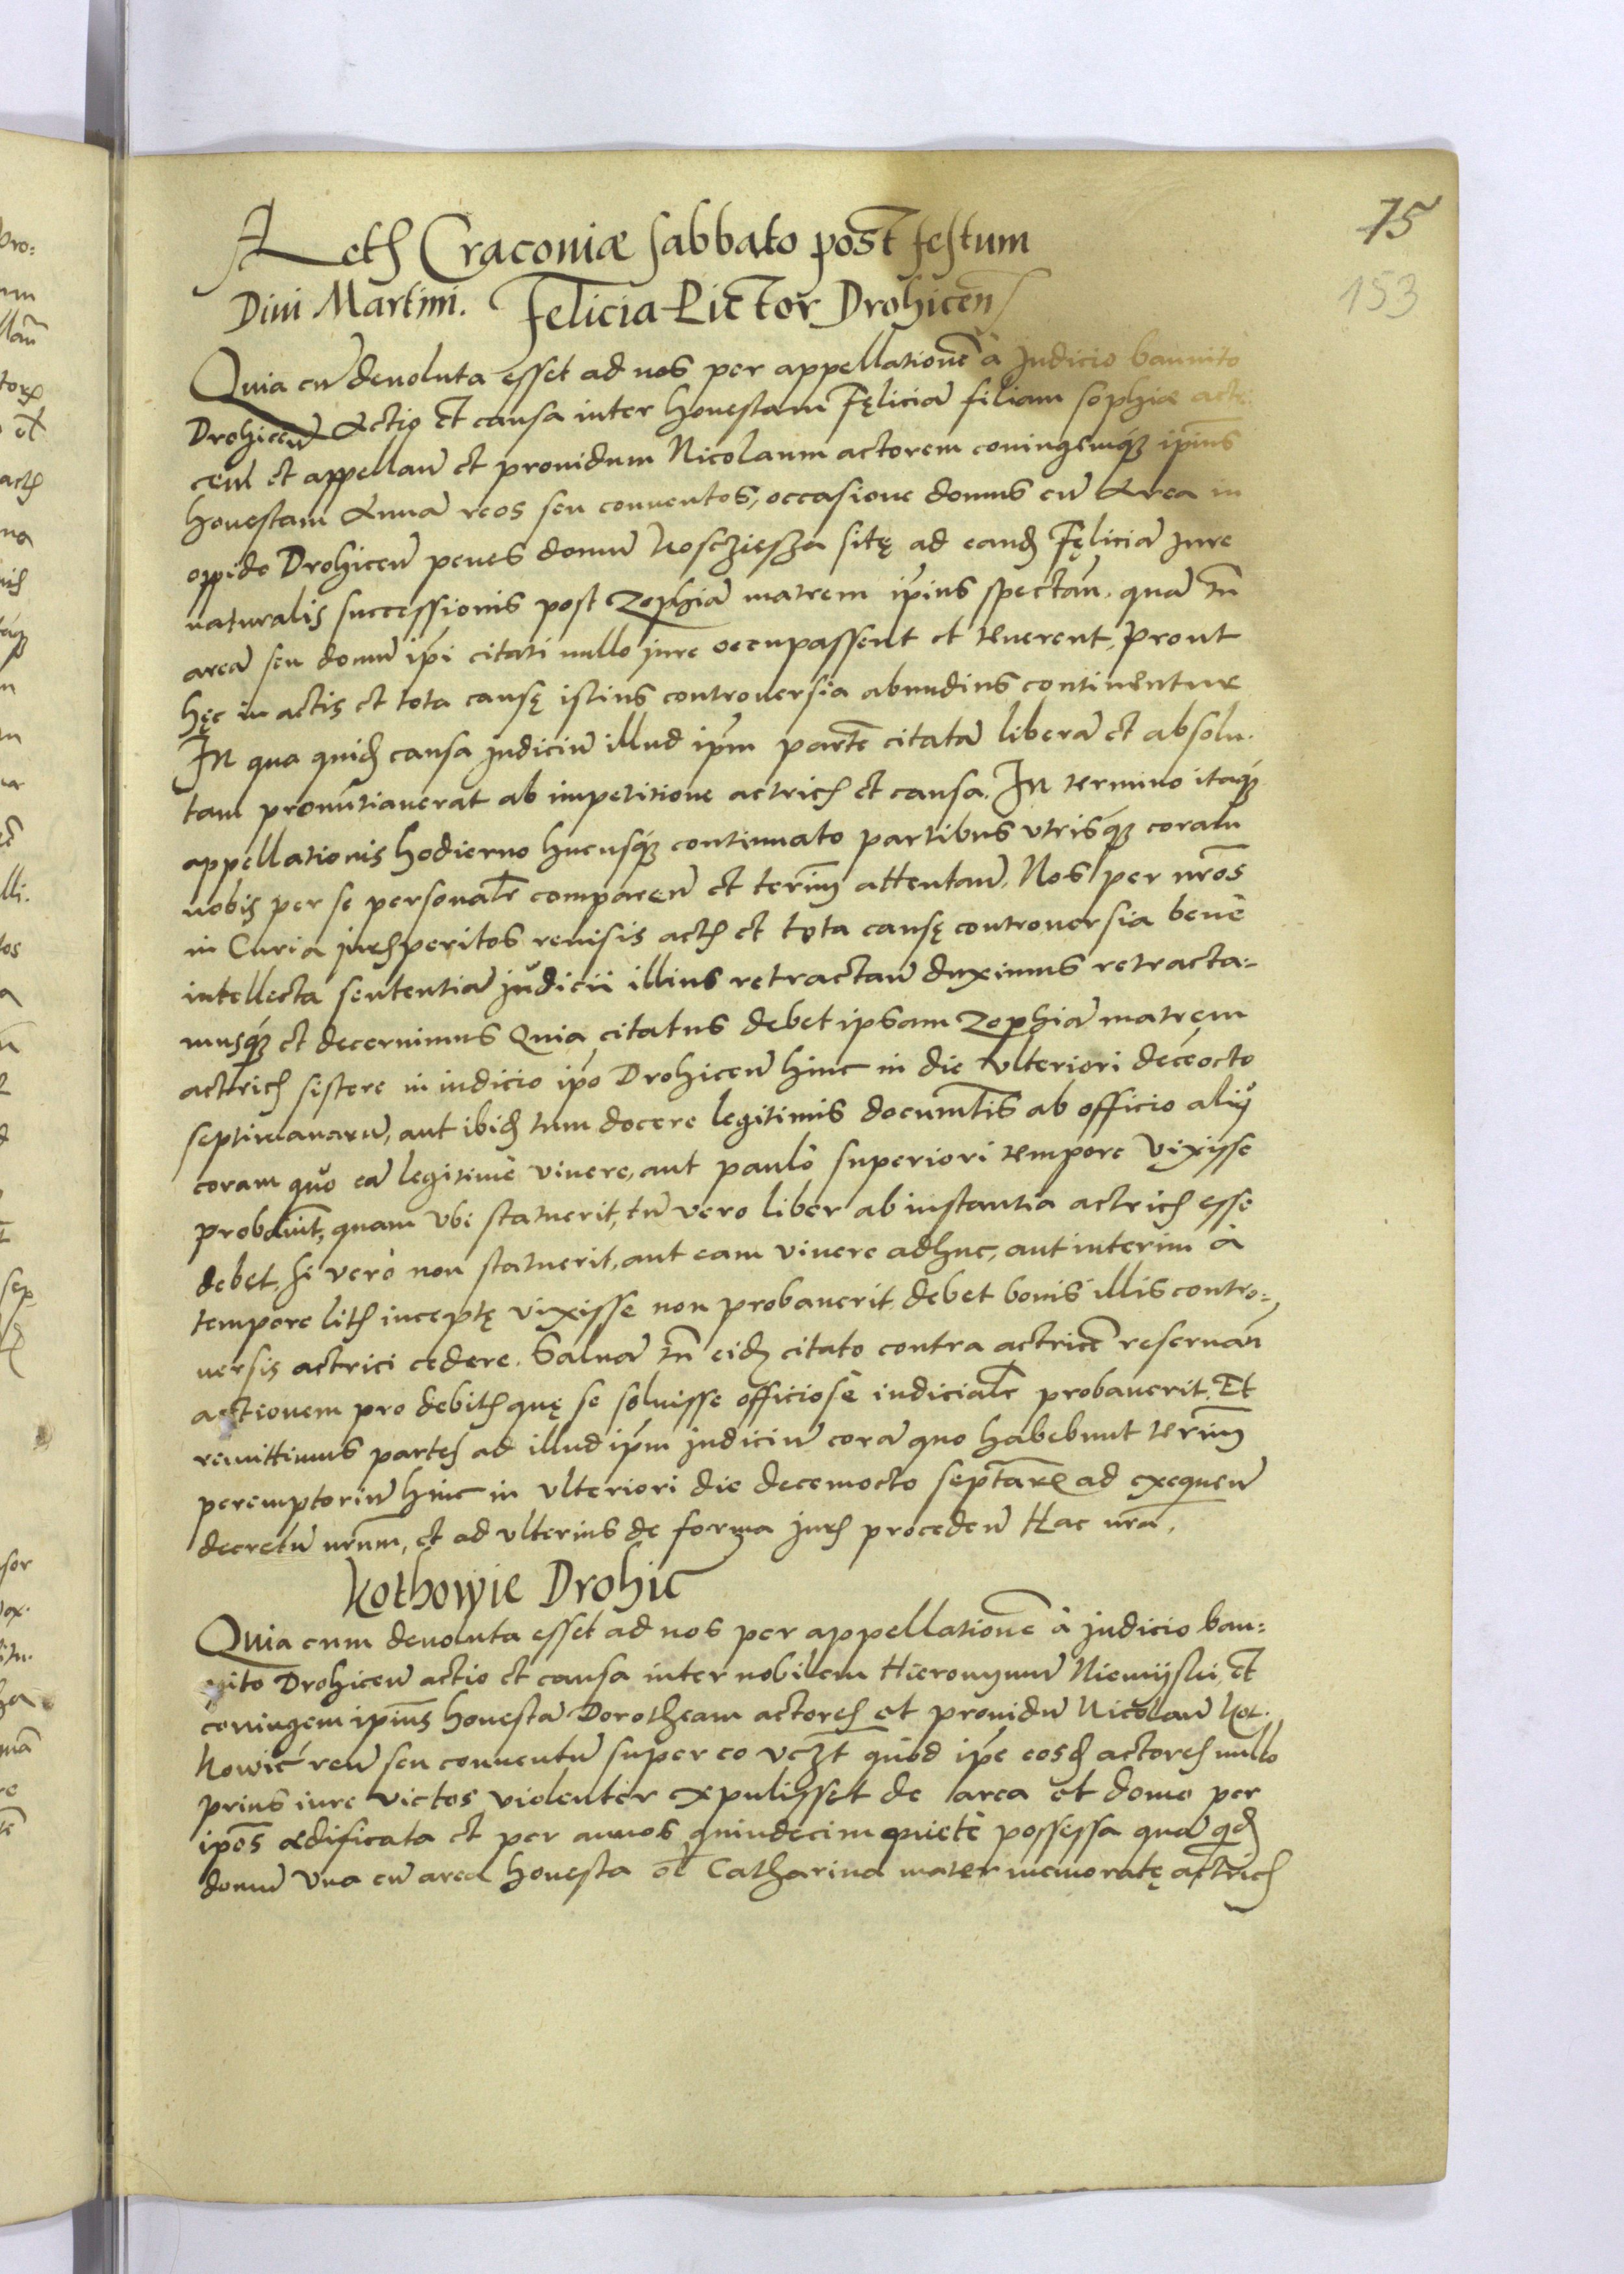 75
153
Acth Craconiæ sabbato post festum
Diui Martini. Felicia Pictor Drohicen
Quia cũ deuoluta esset ad nos per appellationẽ à Judicio bannito
Drohiceñ Actio et causa inter honestam Fęliciã filiam sophiæ actri
cem et appellañ et prouidum Nicolaum actorem coniugemq́ȝ ip̃ius
honestam Annã reos seu conuentos, occasione domus cũ Area in
oppido Drohiceñ penes domũ sitę ad eand Fęliciã Jure
naturalis successionis post Zophiã matrem ip̃ius spectañ. quã tñ
areã seu domũ ip̃i citati nullo jure occupassent et tenerent, Prout
hęc in actis et tota causę istius controuersia abundius continentur
In qua quid causa judiciũ illud ip̃m partẽ citatã liberã et absolu-
tam pronũtiauerat ab impetitione actricis et causa. In termino itaq́ȝ
appellationis hodierno hucusq́ȝ continuato partibus vtrisq́ȝ coram
nobis per se personalr compareñ et termiñ attentañ. Nos per nr̃os
in Curia juris peritos reuisis actis et tota causę controuersia benè
intellecta sententiã judicii illius retractañ duximus retracta-
musq́ȝ et decernimus Quia citatus debet ipsam Zophiã matrem
actricis sistere in iudicio ip̃o Drohiceñ hinc in die vlteriori decẽocto
septimanarũ, aut ibid tum docere legitimis documẽtis ab officio aliq̃
coram quo eã legitimè viuere, aut paulò superiori tempore vixisse
probauit, quam vbi statuerit, tũ vero liber ab instantia actricis esse
debet. si verò non statuerit, aut eam viuere adhuc, aut interim à
tempore litis inceptę vixisse non probauerit debet bonis illis contro-
uersis actrici cedere. Saluã tñ eid citato contra actricẽ reseruañ
actionem pro debitis quę se soluisse officiosè iudicialr probauerit. Et
remittimus partes ad illud ip̃m judiciũ corã quo habebunt termiñ
peremptoriũ hinc in vlteriori die decemocto septiar̃ ad exequeñ
decretũ nrũm, et ad vlterius de forma juris procedeñ Hac nr̃a,
Kothowic Drohic
Quia cum deuoluta esset ad nos per appellationẽ à judicio ban-
nito Drohiceñ actio et causa inter nobilem Hieronymũ Niemijski, et
coniugem ip̃ius honestã Dorotheam actores et prouidũ Nicolaũ Kot-
howic reũ seu conuentũ super eo vczt quòd ip̃e eosd actores nullo
prius iure victos violenter expulisset de area et domo per
ip̃os ædificata et per annos quindecim quietè possessa quã qd
domũ vna cũ area honesta ol̃ Catharina mater memoratę actricis